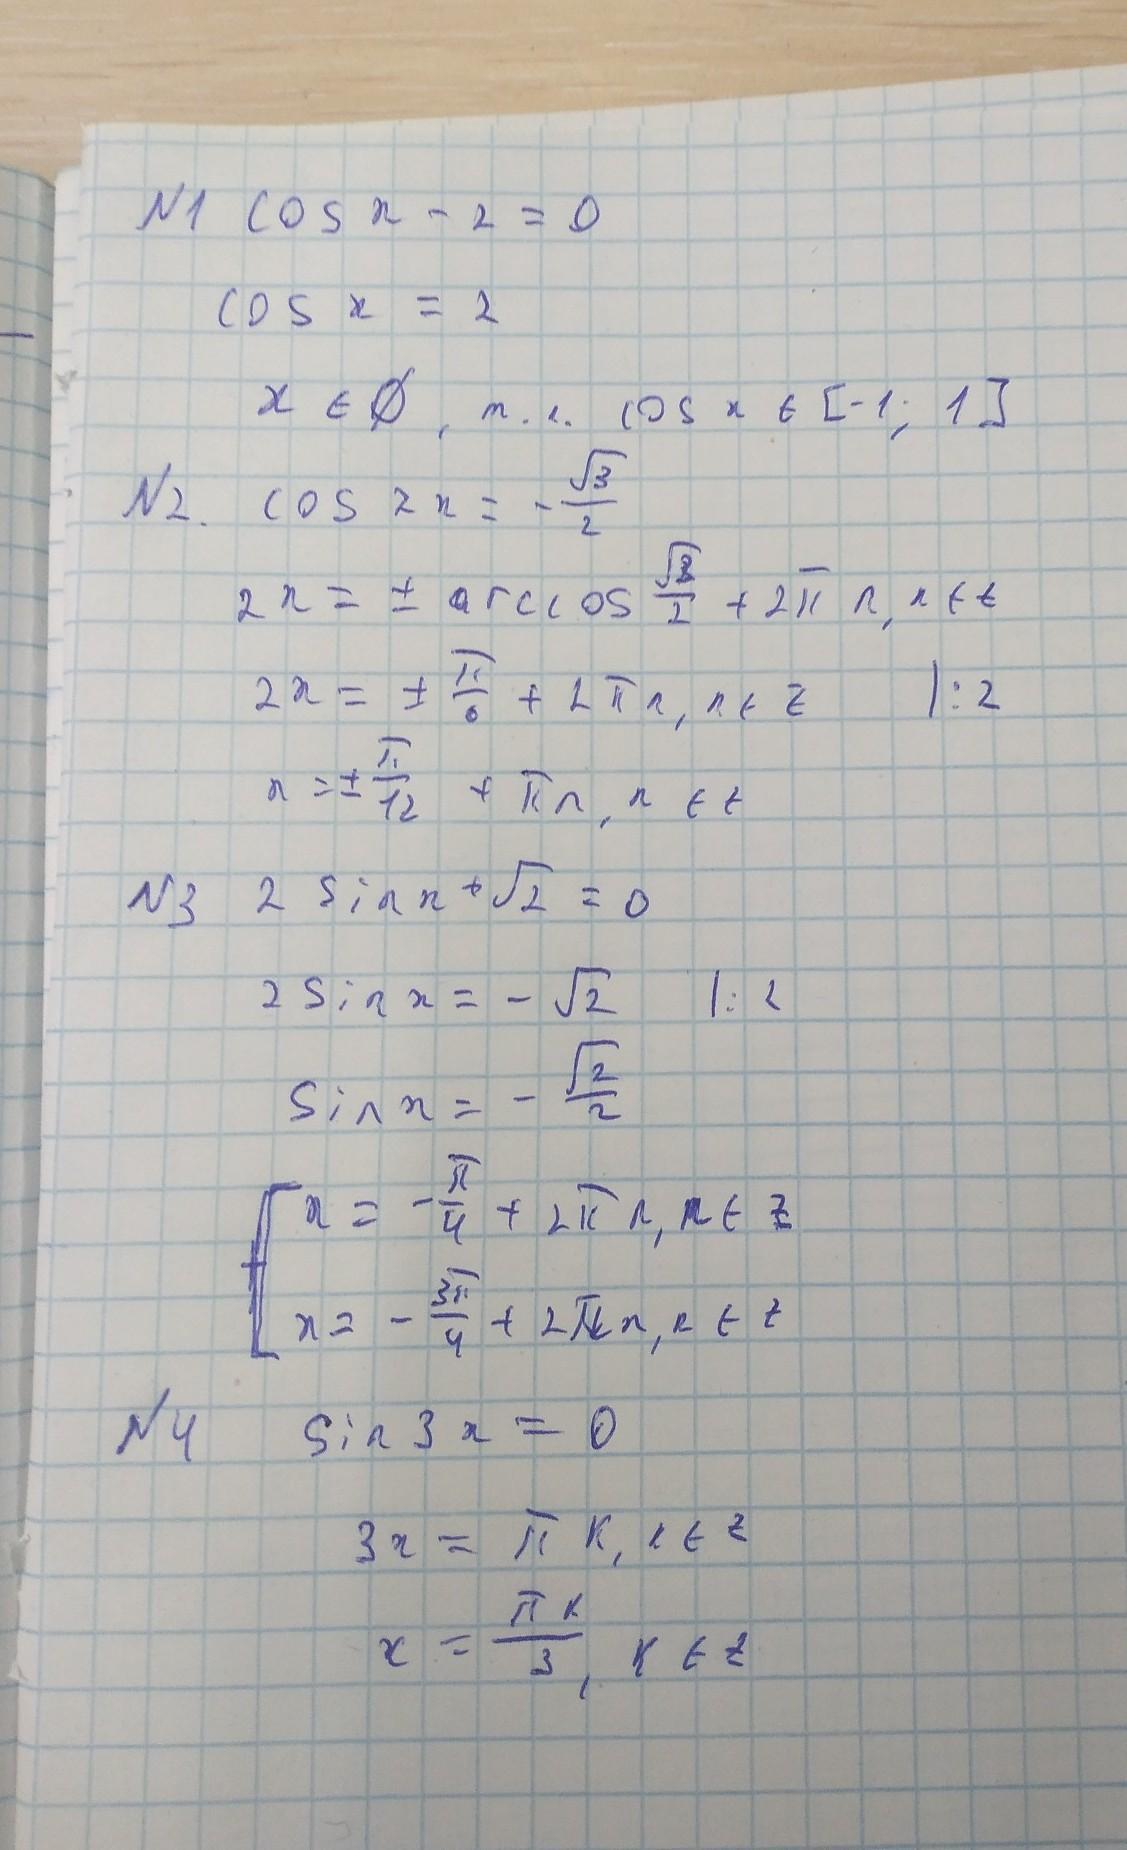 N1 cos x - 2 = 0
cos x = 2
x ∈ Ø, т.к. cos x ∈ [-1; 1]
N2. cos 2x = -√3/2
2x = ± arccos √3/2 + 2π n, n ∈ Z
2x = ± π/6 + 2π n, n ∈ Z |:2
x = ± π/12 + π n, n ∈ Z
N3 2 sin x + √2 = 0
2 sin x = - √2 |:2
sin x = - √2/2
[ x = - π/4 + 2π n, n ∈ Z
x = - 3π/4 + 2π n, n ∈ Z
N4 sin 3x = 0
3x = π k, k ∈ Z
x = πk/3, k ∈ Z